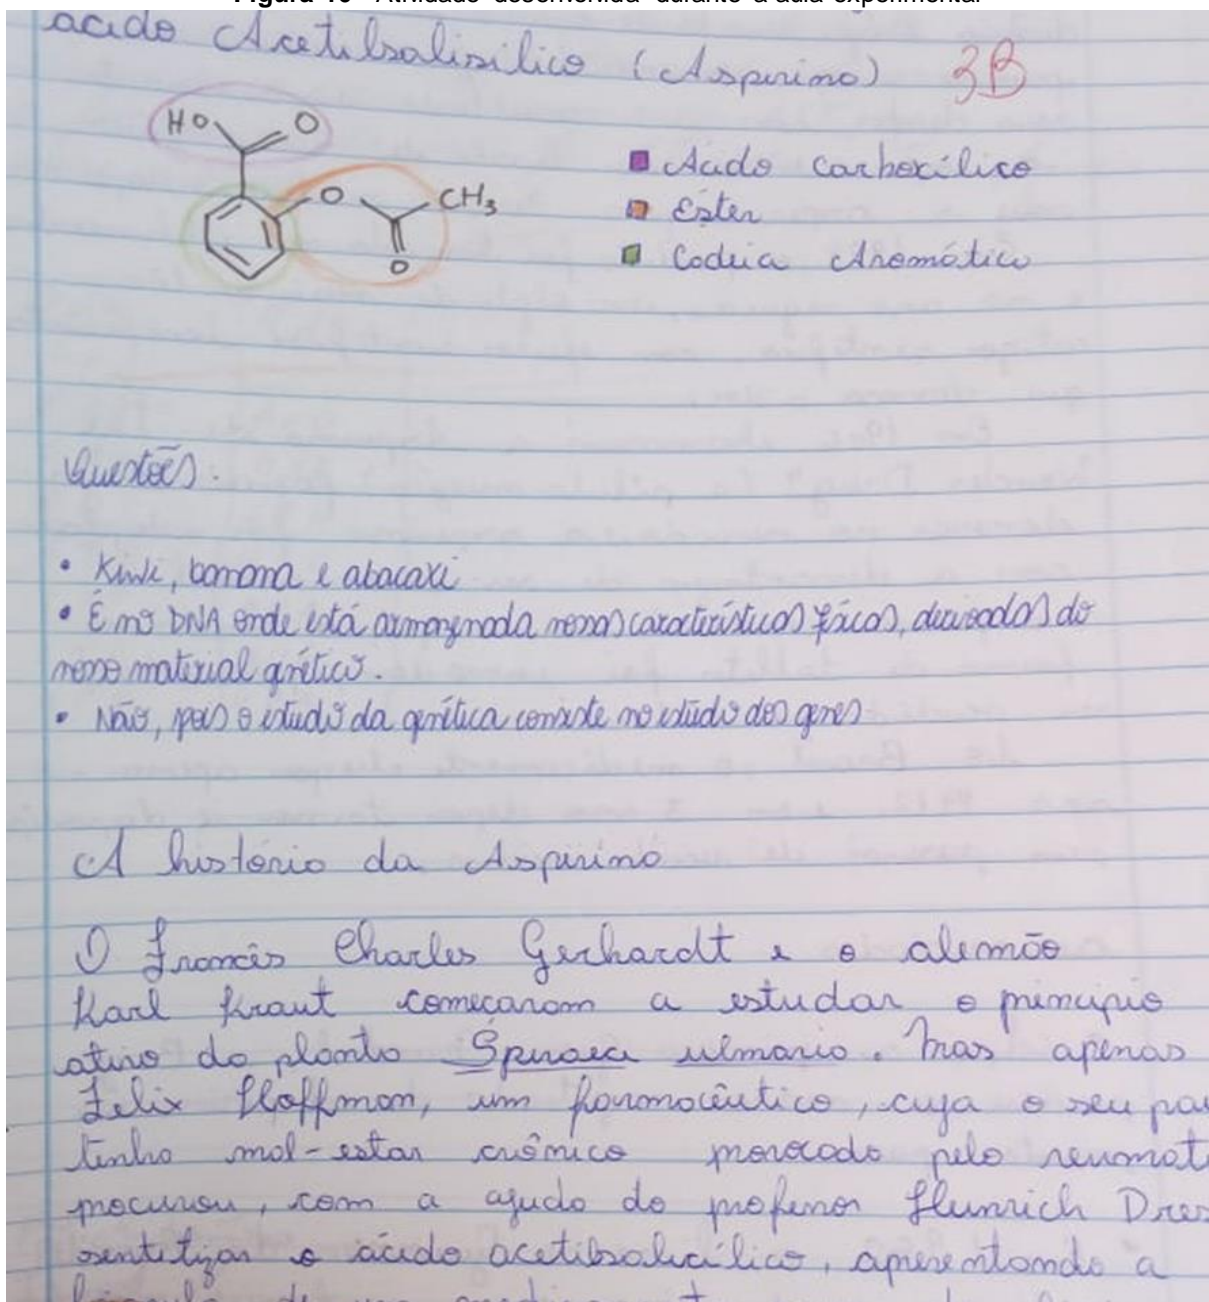 Atividade desenvolvida durante a aula experimental
ácido Acetilsalisílico (Aspirina) 3B
HO O
O CH3
O
Ácido Carboxílico
Éster
Cadeia Aromática
Questões:
• Kiwi, banana e abacaxi
• É no DNA onde está armazenada nossas características físicas, derivadas do
nosso material genético.
• Não, pois o estudo da genética consiste no estudo dos genes
A história da Aspirina
O Francês Charles Gerhardt e o alemão
Karl Kraut começaram a estudar o princípio
ativo da planta Spiraea ulmaria. Mas apenas
Felix Hoffman, um farmacêutico, cuja o seu
tinha mal-estar crônico pelo
procurou, com a ajuda do professor
sintetizar o ácido acetilsalicílico, apresentando a